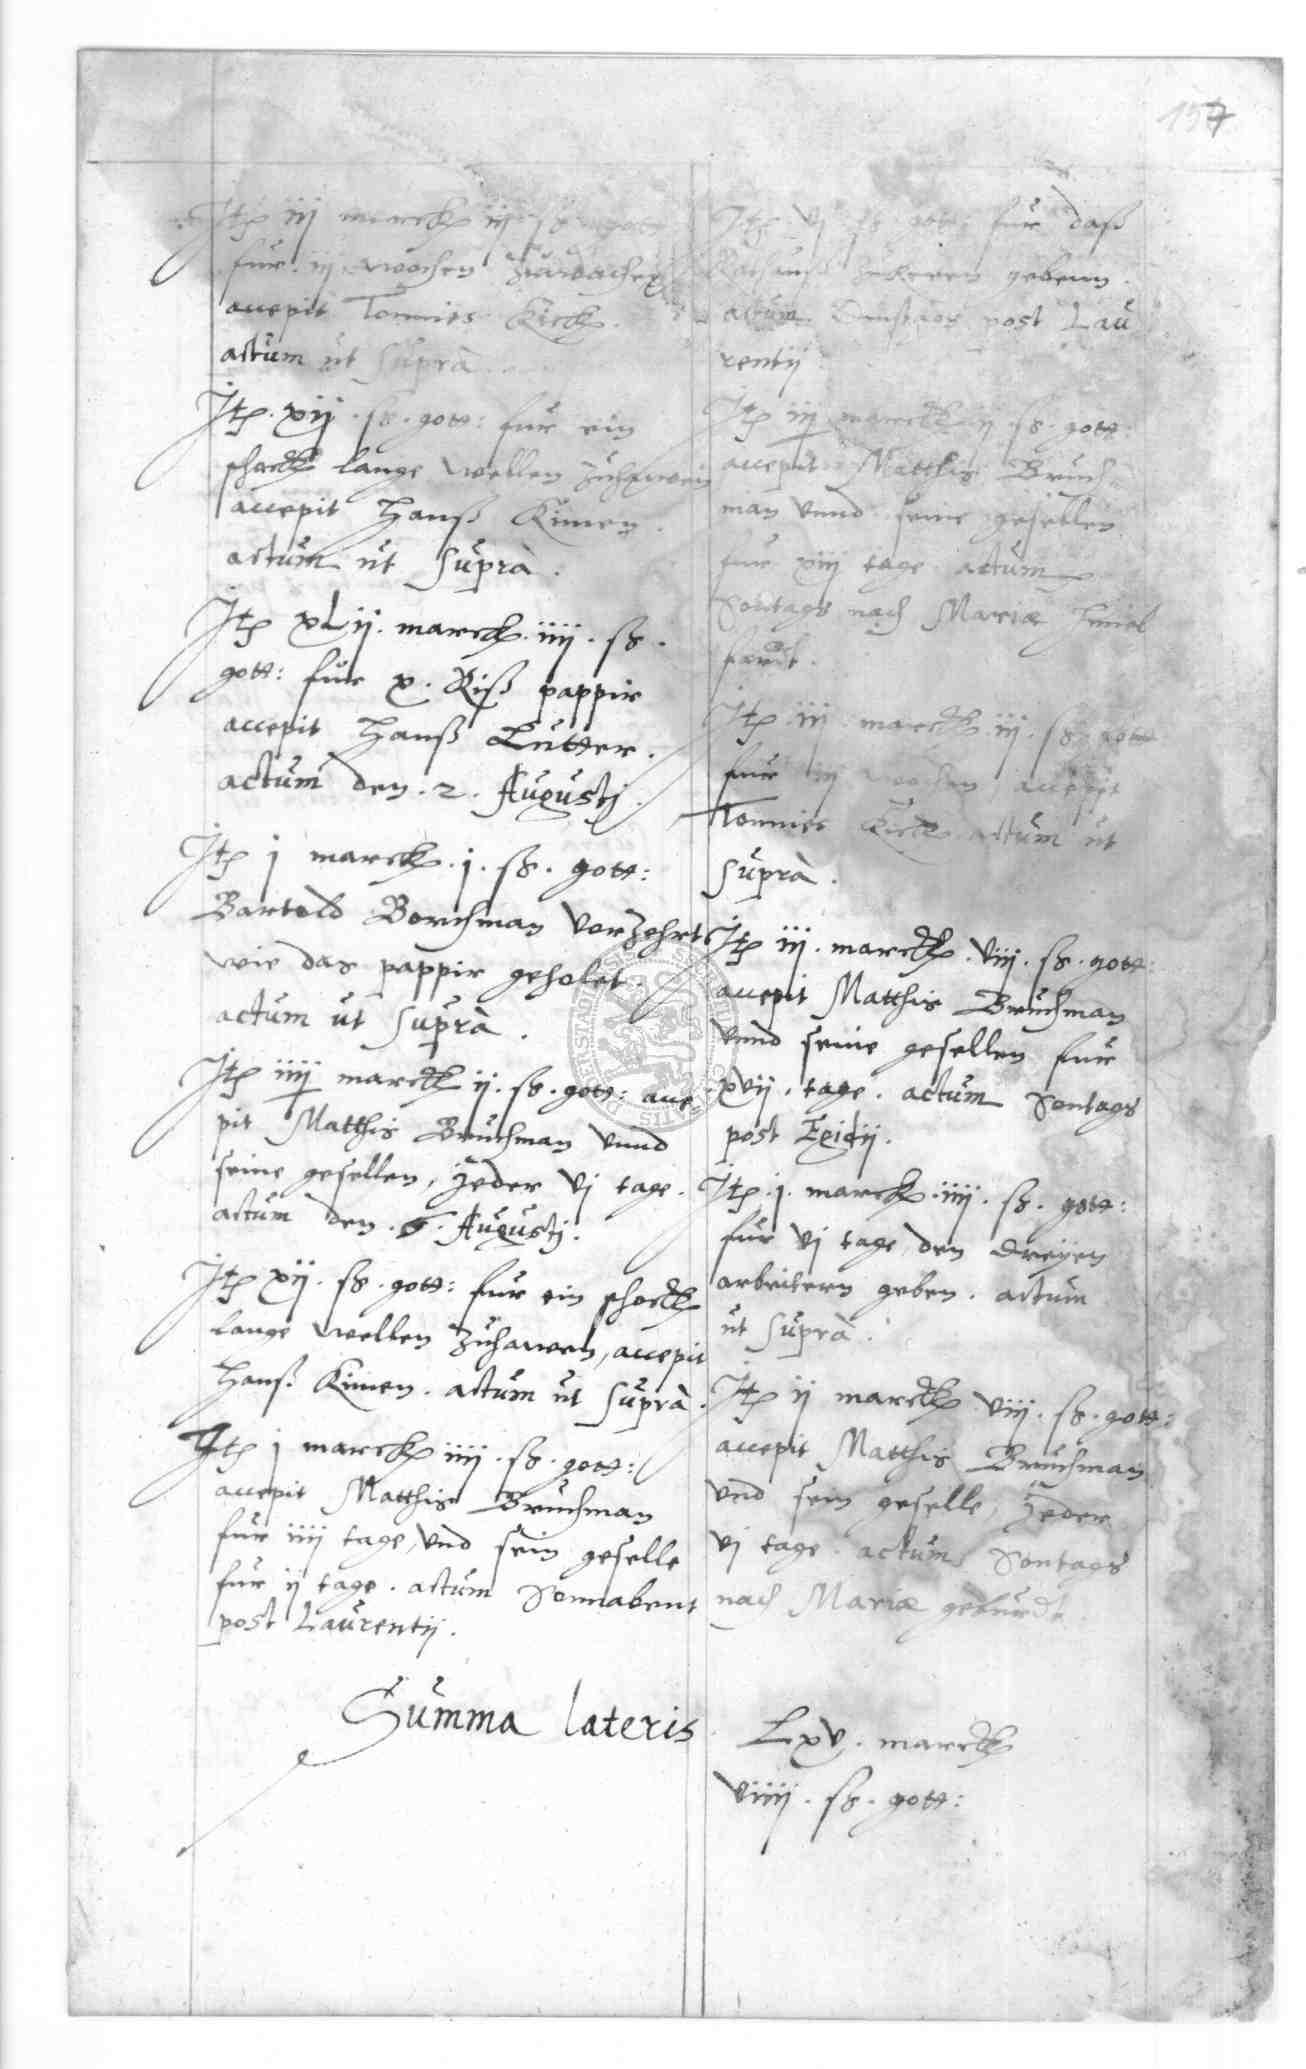 157
Jtem iij marck iij ss gott:
fur iij wochen zuwachen
accepit Tonnies Kick.
actum ut suprà.
Jtem xij. ss. gott: fur ein
schock lange wellen zuhawen
accepit Hanß Kimen.
actum ut suprà.
Jtem xLij. marck. iiij. ss.
gott: fur x. Riß pappir
accepit Hanß Lutter.
actum den. 2. Augustj.
Jtem j marck. j. ss. gott:
Bartold Borchman vorzehrt
wie das pappir geholet.
actum ut suprà.
Jtem iiij marck ij. ss. gott: acce
pit Matthis Bruchman vnnd
seine gesellen, jeder vj tage.
actum den. 6. Augustj.
Jtem xij. ss. gott: fur ein schock
lange wellen zuhawen, accepit
Hanß Kimen. actum ut suprà.
Jtem j marck iiij. ss. gott:
accepit Matthis Bruchman
fur iiij tage, vnd sein geselle
fur ij tage. actum Sonnabent
post Laurentij.
Jtem vj ss gott: fur daß
Rathauß zukeren gebenn.
actum Dinstags post Lau
rentij
Jtem iij marck ij ss. gott:
accepit Matthis Bruch
man vnnd seine gesellen
fur xiij tage actum
Sontags nach Mariæ himel
fardt.
Jtem iij marck iij. ss. gott:
fur iij wochen accepit
Tonnies Kick actum ut
suprà.
Jtem iij. marck. viij. ss. gott:
accepit Matthis Bruchman
vnnd seine gesellen fur
xvij. tage. actum Sontags
post Egidij.
Jtem. j. marck. iiij. ss. gott:
fur vj tage den dreyen
arbeitern geben. actum
ut suprà.
Jtem ij marck viij. ss. gott:
accepit Matthis Bruchman
vnd sein geselle, jeder
vj tage. actum Sontags
nach Mariæ geburdt.
Summa lateris. Lxv. marck
viiij. ss. gott: